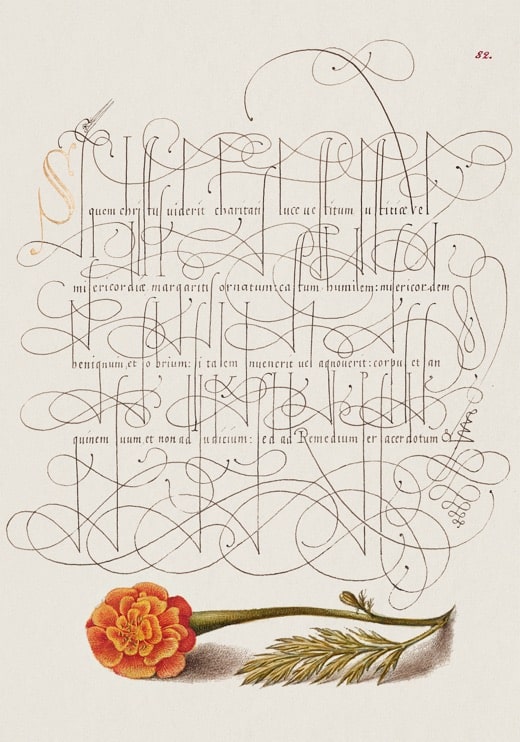 82.
Si quem christus uiderit charitatis luce uestitum iustitiæ vel
misericordiæ margaritis ornatum: castum humilem: misericordem
benignum, et sobrium: si talem inuenerit uel agnouerit: corpus et san
guinem suum et non ad iudicium: sed ad Remedium per sacerdotum &